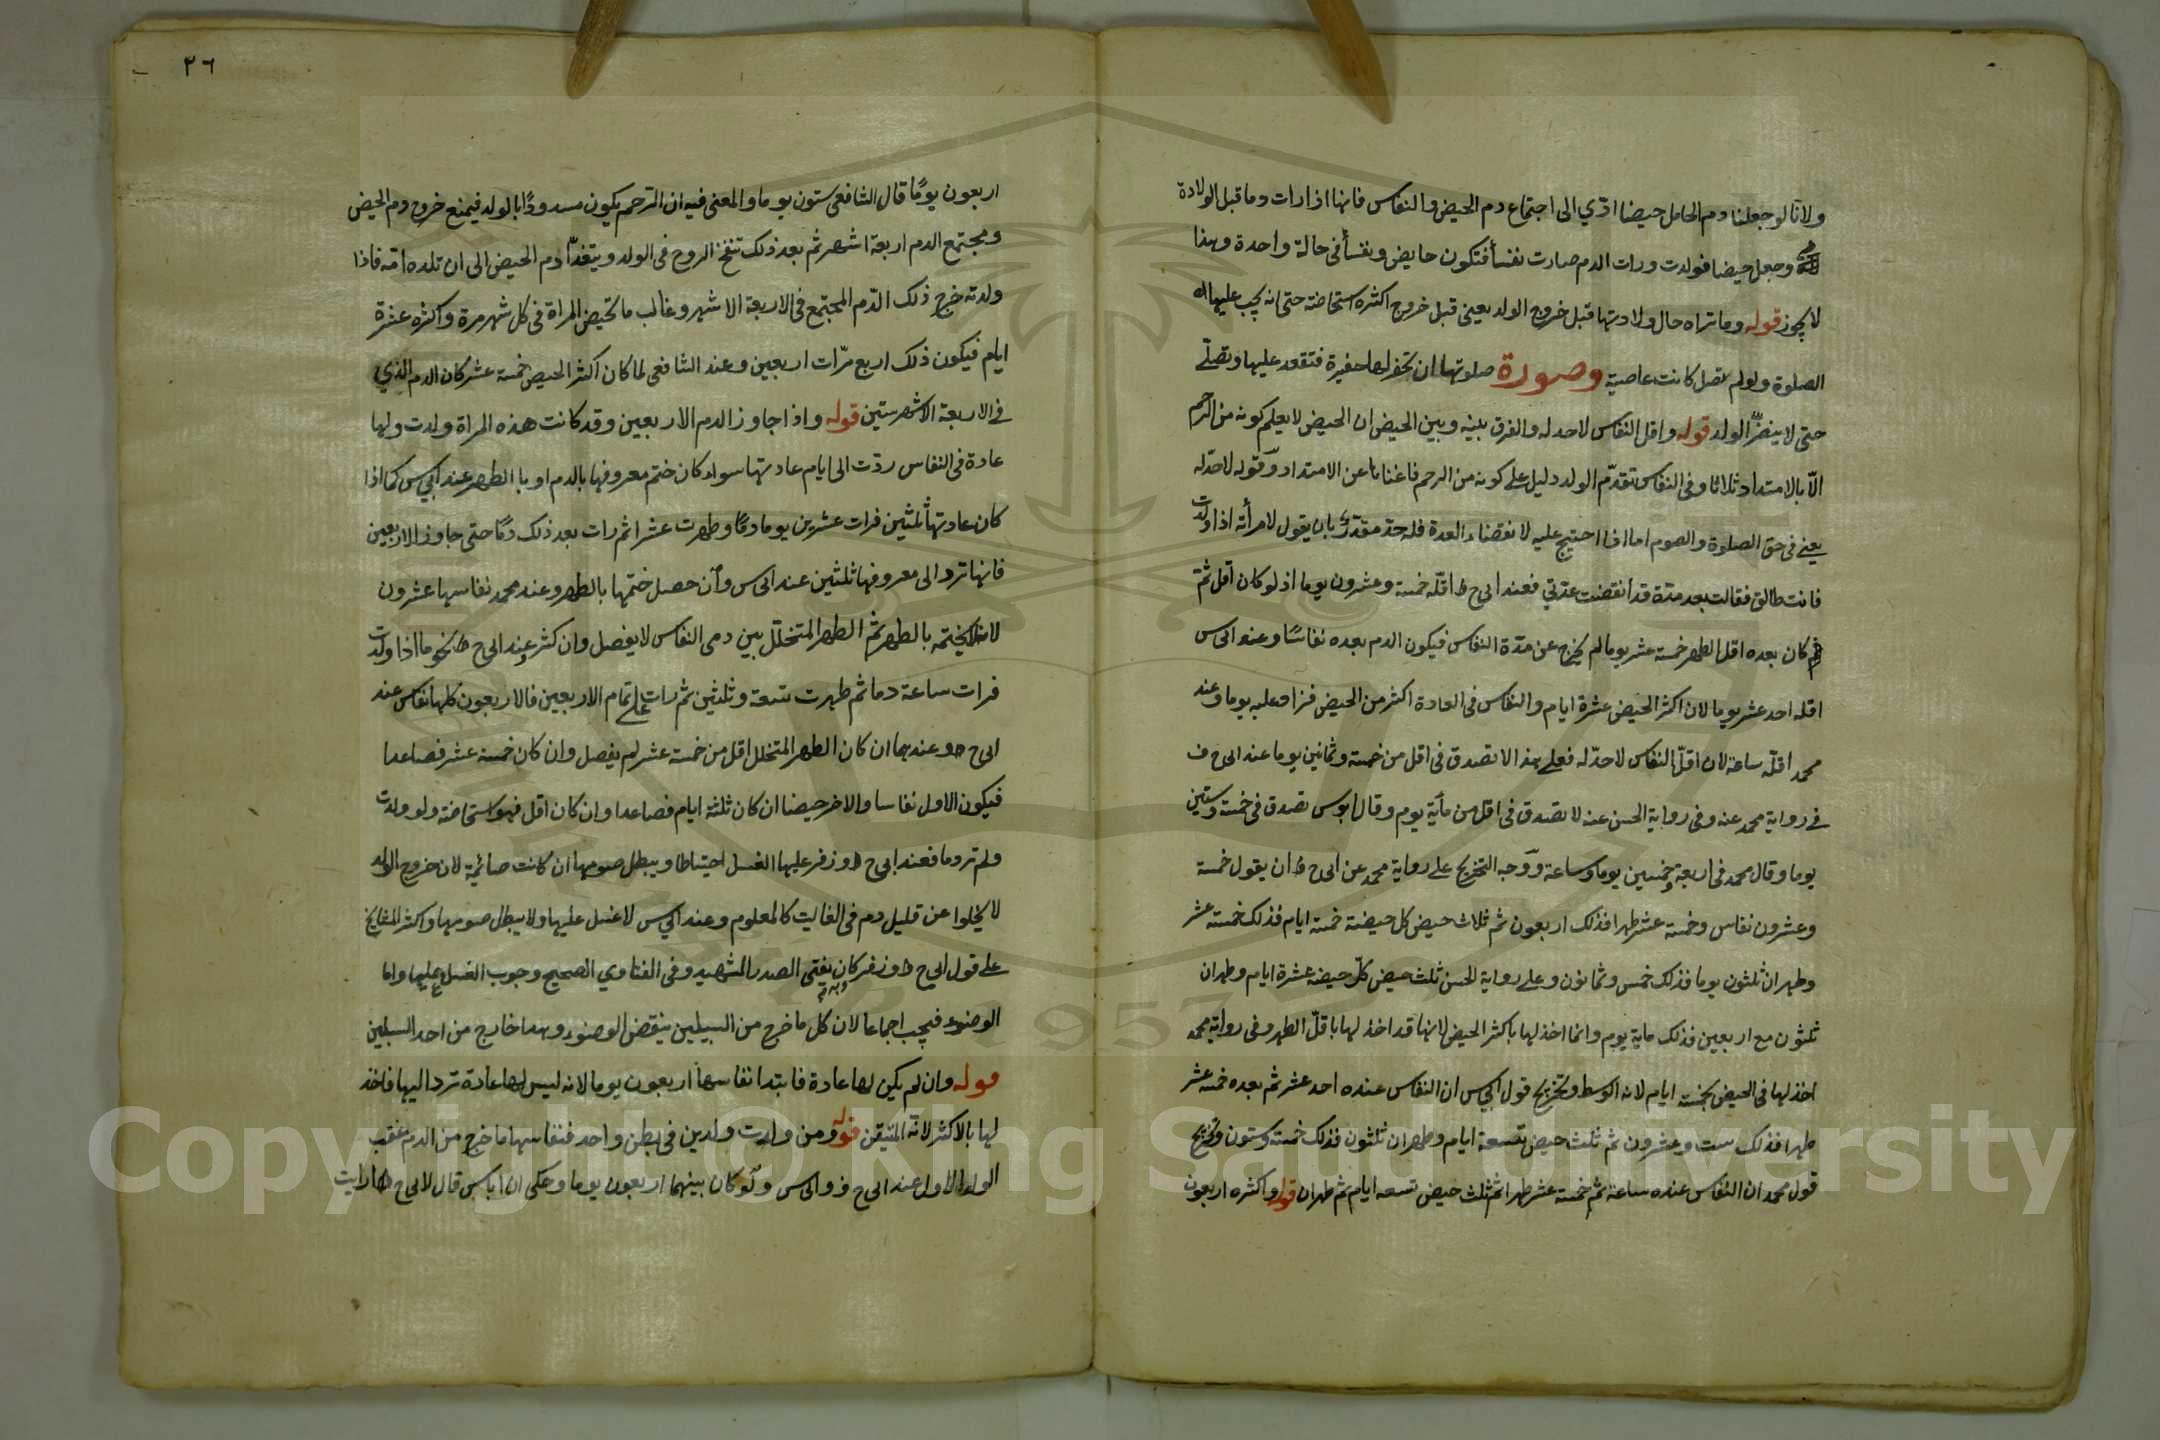 ولانا لو جعلنا دم الحامل حيضا ادّي الى اجتماع دم الحيض والنفاس فانها اذا رات دما قبل الولادة
وجعل حيضا فولدت ورات الدم صارت نفسأ فتكون حايض ونفسأ في حالة واحدة وهذا
لا يجوز قوله وما تراه حال ولادتها قبل خروج الولد يعني قبل خروج اكثره استحاضة حتى انه يجب عليها
الصلوة ولو لم تصل كانت عاصية وصورة صلوتها ان تحفر لها حفيرة فتقعد عليها وتصلّي
حتى لا ينضرّ الولد قوله واقل النفاس لا حد له والفرق بينه وبين الحيض ان الحيض لا يعلم كونه من الرحم
الّا بالامتداد ثلاثا وفي النفاس تقدّم الولد دليل على كونه من الرحم فاغنانا عن الامتداد وقوله لا حدّ له
يعني في حق الصلوة والصوم اما اذا احتيج عليه لانقضاء العدة فله حدّ مقدّر بان يقول لامرأته اذا ولدت
فانت طالق فقالت بعد مدّة قد انقضت عدّتي فعند ابي ح ط اقلّه خمسة وعشرون يوما اذ لو كان اقل ثمّ
كان بعده اقل الطهر خمسة عشر يوما لم يخرج عن مدّة النفاس فيكون الدم بعده نفاسًا وعند ابي س
اقله احد عشر يوما لان اكثر الحيض عشرة ايام والنفاس في العادة اكثر من الحيض فزاد عليه يوما وعند
محمد اقلّه ساعة لان اقلّ النفاس لا حدّ له فعلى هذا لا تصدق في اقل من خمسة وثمانين يوما عند ابي ح ف
في رواية محمد عنه وفي رواية الحسن عنه لا تصدق في اقل من مأية يوم وقال ابوس تصدق في خمسة وستين
يوما وقال محمد في اربعة وخمسين يوما وساعة ووجه التخريج على رواية محمد عن ابي ح ط ان يقول خمسة
وعشرون نفاس وخمسة عشر طهرا فذلك اربعون ثم ثلاث حيض كل حيضة خمسة ايام فذلك خمسة عشر
وطهران ثلثون يوما فذلك خمس وثمانون وعلى رواية الحسن ثلث حيض كلّ حيضة عشرة ايام وطهران
ثلثون مع اربعين فذلك ماية يوم وانما اخذ لها باكثر الحيض لانها قد اخذ لها باقلّ الطهر وفي رواية محمد
اخذ لها في الحيض بخمسة ايام لانه الوسط وتخريج قول ابي س ان النفاس عنده احد عشر ثم بعده خمسة عشر
طهرا فذلك ست وعشرون ثم ثلث حيض تسعة ايام وطهران ثلثون فذلك خمسة وستون وتخريج
قول محمد ان النفاس عنده ساعة ثم خمسة عشر طهرا ثم ثلث حيض تسعة ايام ثم طهران قوله واكثره اربعون
٢٦
اربعون يومًا قال الشافعي ستون يوما والمعنى فيه ان الرحم يكون مسدودًا بالولد فيمنع خروج دم الحيض
ومجتمع الدم اربعة اشهر ثم بعد ذلك تنفخ الروح في الولد ويتغذّا دم الحيض الى ان تلده امّه فاذا
ولدته خرج ذلك الدّم المجتمع في الاربعة الاشهر وغالب ما تحيض المراة في كل شهر مرة واكثره عشرة
ايام فيكون ذلك اربع مرّات اربعين وعند الشافعي لما كان اكثر الحيض خمسة عشر كان الدم الذي
في الاربعة الاشهر ستين قوله واذا جاوز الدم الاربعين وقد كانت هذه المراة ولدت ولها
عادة في النفاس ردّت الى ايام عادتها سواء كان ختم معروفها بالدم او بالطهر عند ابي س كما اذا
كان عادتها ثلثين فرات عشرين يوما دمًا وطهرت عشرا ثم رات بعد ذلك دمًا حتى جاوز الاربعين
فانها ترد الى معروفها ثلثين عند ابي س وان حصل ختمها بالطهر وعند محمد نفاسها عشرون
لانه لا يختمه بالطهر ثم الطهر المتخلّل بين دمي النفاس لا يفصل وان كثر عند ابي ح ط نحو ما اذا ولدت
فرات ساعة دما ثم طهرت تسعة وثلثين ثم رات على تمام الاربعين فالاربعون كلها نفاس عند
ابي ح ط وعندهما ان كان الطهر المتخلل اقل من خمسة عشر لم يفصل وان كان خمسة عشر فصاعدا
فيكون الاول نفاسا والاخر حيضا ان كان ثلثة ايام فصاعدا وان كان اقل فهو استحاضة ولو ولدت
ولم تر دما فعند ابي ح ط وزفر عليها الغسل احتياطا ويبطل صومها ان كانت صائمة لان خروج الولد
لا يخلوا عن قليل دم في الغالب كالمعلوم وعند ابي س لا غسل عليها ولا يبطل صومها واكثر المشايخ
على قول ابي ح ط وزفر وبه كان يفتي الصدر الشهيد وفي الفتاوي الصحيح وجوب الغسل عليها واما
الوضوء فيجب اجماعا لان كل ما خرج من السبيلين ينقض الوضوء وهذا خارج من احد السبيلين
قوله وان لم يكن لها عادة فابتدا نفاسها اربعون يوما لانه ليس لها عادة ترد اليها فاخذ
لها بالاكثر لانّه المتيقن قوله ومن ولدت ولدين في بطن واحد فنفاسها ما خرج من الدم عقب
الولد الاول عند ابي ح ف وابي س ولو كان بينهما اربعون يوما وحكى ان ابا س قال لابي ح ط ارايت